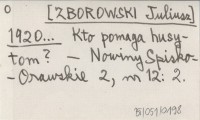 O
[ZBOROWSKI Juliusz]
1920... Kto pomaga husy-
tom? — Nowiny Spisko-
-Orawskie 2, nr 12: 2.